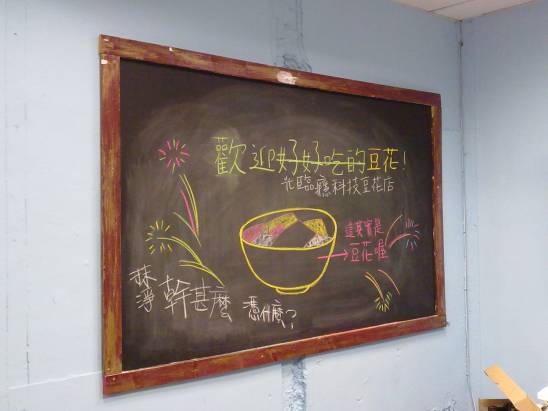 歡迎好好吃的豆花!
光臨癮科技豆花店
這其實是
豆花喔
抹淨
幹甚麼
憑什麼?